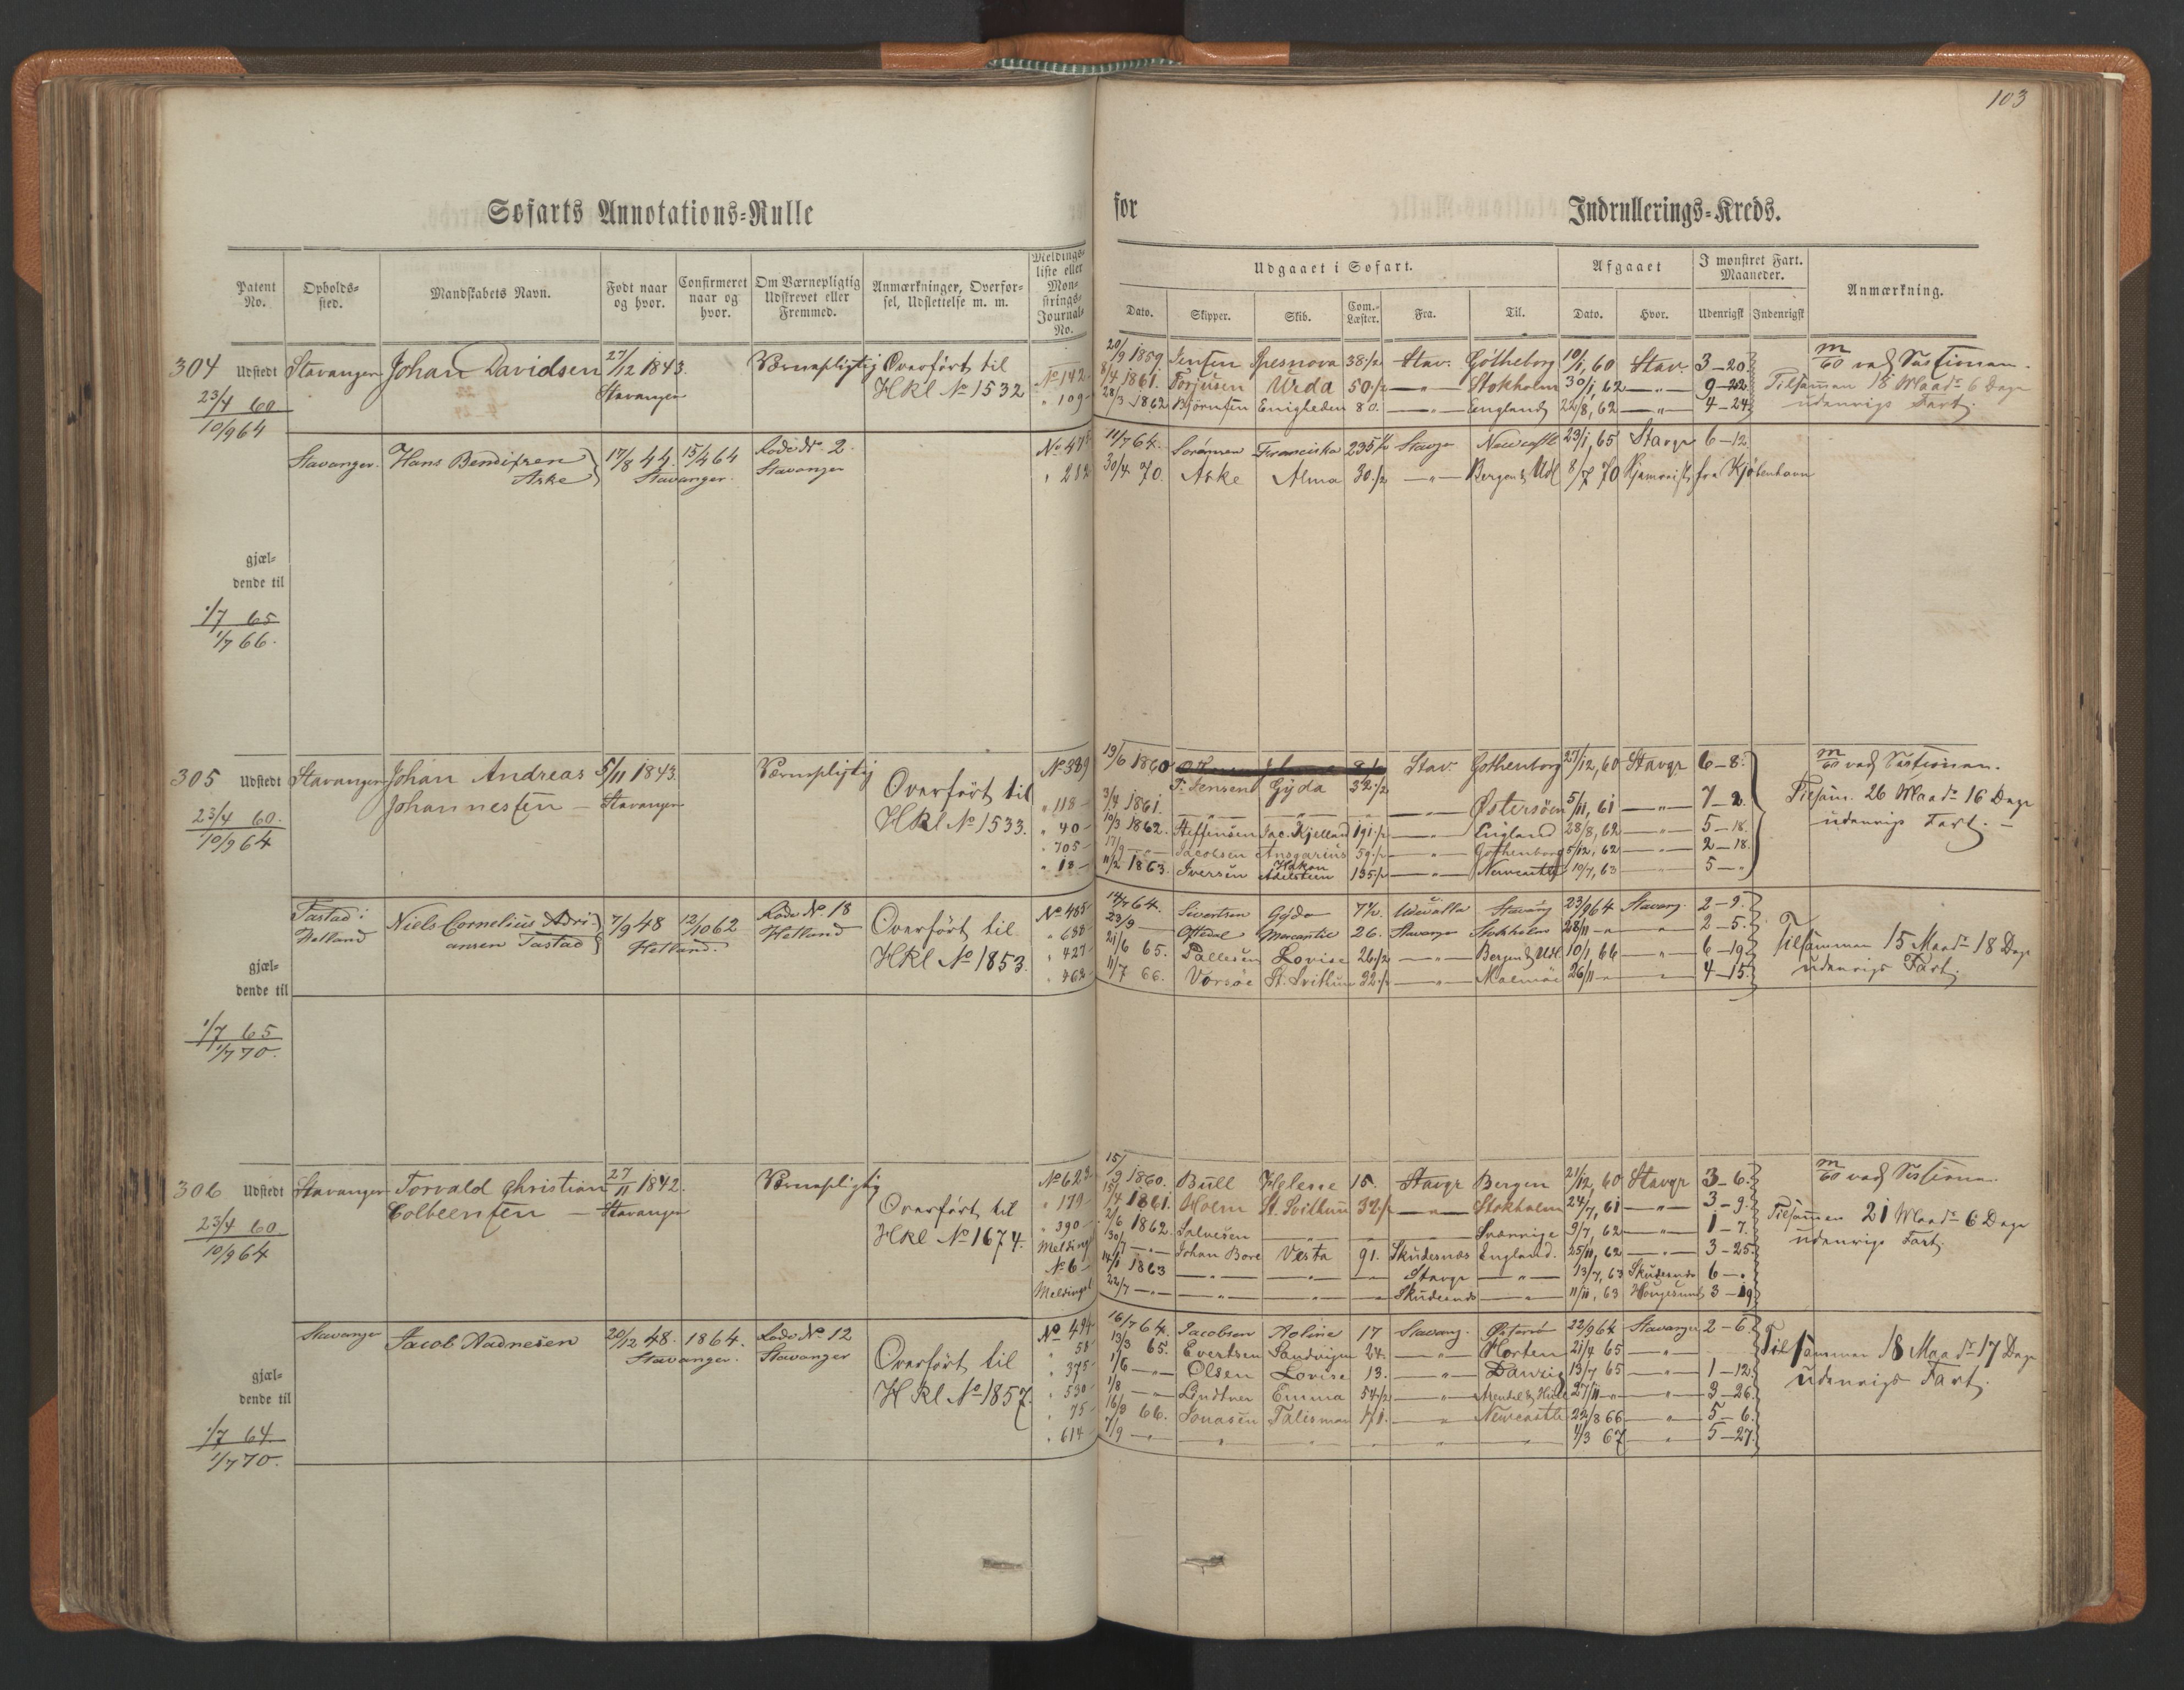 103
Søfarts Annotations-Rulle for Indrullerings-Kreds.
Patent No.
Opholds-sted.
Mandskabets Navn.
Født naar og hvor.
Confirmeret naar og hvor.
Om Værnepligtig Udskrevet eller Fremmed.
Anmærkninger, Overfør-sel, Udslettelse m. m.
Meldings-liste eller Mon-strings-Journal-No.
Udgaaet i Søfart.
Dato.
Skipper.
Skib.
Com.-Læster.
Fra.
Til.
Afgaaet
Dato.
Hvor.
I mønstret Fart. Maaneder.
Udenrigsk
Indenrigsk
Anmærkning.
304 Udstedt Stavanger Johan Davidsen 27/12 1843. Stavanger Værnepligtig Overført til HKl No 1532
23/4 60
10/9 64
No 142 20/9 1859 Jensen Spesnova 38 1/2 Stav. Götheborg 10/1, 60 Stav. 3–20
8/4 1861. Torjusen Urda 50 1/2 —„— Stokholm 30/1, 62 —„— 9–22
„ 109 28/3 1862 Bjørnsen Enigheden 80. —„— England 22/8, 62 —„— 4–24
Tilsammen 18 Maadr 6 Dage
udenrigs Fart.
Stavanger. Hans Bendixen Aske 17/8 44. 15/4 64 Stavanger. Rode No 2. Stavanger
No 47 11/7 64. Sørensen Franciska 235 1/2 Stavgr Newcastle 23/1, 65 Stavgr 6–12
„ 212 30/4 70. Aske Alma 30 1/2 —„— Bergen & Udl 8/7 70 Hjemreist fra Kjøbenhavn
gjæl-
dende til
1/7 65
1/7 66.
305 Udstedt Stavanger Johan Andreas Johannesen 5/11 1843. Stavanger Værnepligtig Overført til HKl No 1533.
23/4 60.
10/9 64
No 389 19/6 1860 T. Jensen Gyda 32 1/2 Stav. Gothenborg 27/12, 60 Stavgr 6–8.
„ 118 1861. —„— Østersøen 5/11, 61 —„— 7–2.
„ 40 10/3 1862. Steffensen Jac. Kjelland 191 1/2 —„— England 28/8, 62 —„— 5–18.
„ 705 17/9 —„— Jacobsen Ansgarius 59 1/2 —„— Gothenborg 5/12, 62 —„— 2–18.
„ 18 11/2 1863. Iversen Hakon Adelsteen 135 1/2 —„— Newcastle 10/7, 63 —„— 5–„
Tilsam. 26 Maadr 16 Dage
udenrigs Fart.
Tastad: Hetland Niels Cornelius Adriansen Tastad 7/9 48 12/10 62 Hetland. Rode No 18 Hetland Overført til HKl No 1853.
No 485 14/7 64. Sivertsen Gyda Udevalla Stavang 23/9 64 Stavang. 2–9.
„ 688 23/9 — Oftedal Mercantil 26. Stavanger Stokholm 28/11 —„— 2–5.
„ 427 21/6 65. Pallesen Lovise 26 1/2 —„— Bergen & Udl. 10/1, 66 —„— 6–19
„ 462 11/7 66. Vorsøe St. Svithun 32 1/2 —„— Malmöe 26/11 —„— 4–15.
Tilsammen 15 Maadr 18 Dage
udenrigs Fart.
gjæl-
dende til
1/7 65
1/7 70.
306 Udstedt Stavanger Torvald Christian Colbeensen 27/11 1842. Stavanger Værnepligtig Overført til HKl No 1674.
23/4 60
10/9 64
No 623 15/9 1860. Bull Helesse 15. Stavgr Bergen 21/12, 60 Stavgr 3–6.
„ 179 1861. Holm St. Svithun 32 1/2 —„— Stokholm 24/7, 61 —„— 3–9.
„ 390 2/6 1862. Salvesen —„— Sverrige 9/7, 62 —„— 1–7.
Melding 30/7 —„— Johan Bore Vesta 91. Skudesnæs England. 25/11, 62 —„— 3–25.
No 6 14/1 1863 —„— Stavgr —„— 13/7, 63 Skudesnæs 6–„
Meldingsl 22/7 —„— Skudesnæs —„— 11/11, 63 Haugesund 3–19
Tilsammen 21 Maadr 6 Dage
udenrigs Fart.
Stavanger Jacob Aadnesen 20/12 48. 1864. Stavanger. Rode No 12 Stavanger Overført til HKl No 1857.
No 494 16/7 64. Jacobsen Aoline 17 Stavang. Østersø 22/9 64 Stavanger 2–6.
„ 58 13/3 65. Evertsen Sandvigen 24. —„— Horten 21/4 65 —„—
„ 375 1/6 —„— Olsen Lovise 13. —„— Danzig 13/7 65 —„— 1–12.
„ 530 1/8 —„— Lindtner Emma 54 1/2 —„— 27/11 —„— 3–26.
„ 75 16/3 66. Jonasen Talisman 171. —„— Newcastle 22/8 66 —„— 5–6.
„ 614 7/9 —„— 4/3 67 —„— 5–27.
Tilsammen 18 Maadr 17 Dage
udenrigs Fart.
gjæl-
dende til
1/7 64
1/7 70.